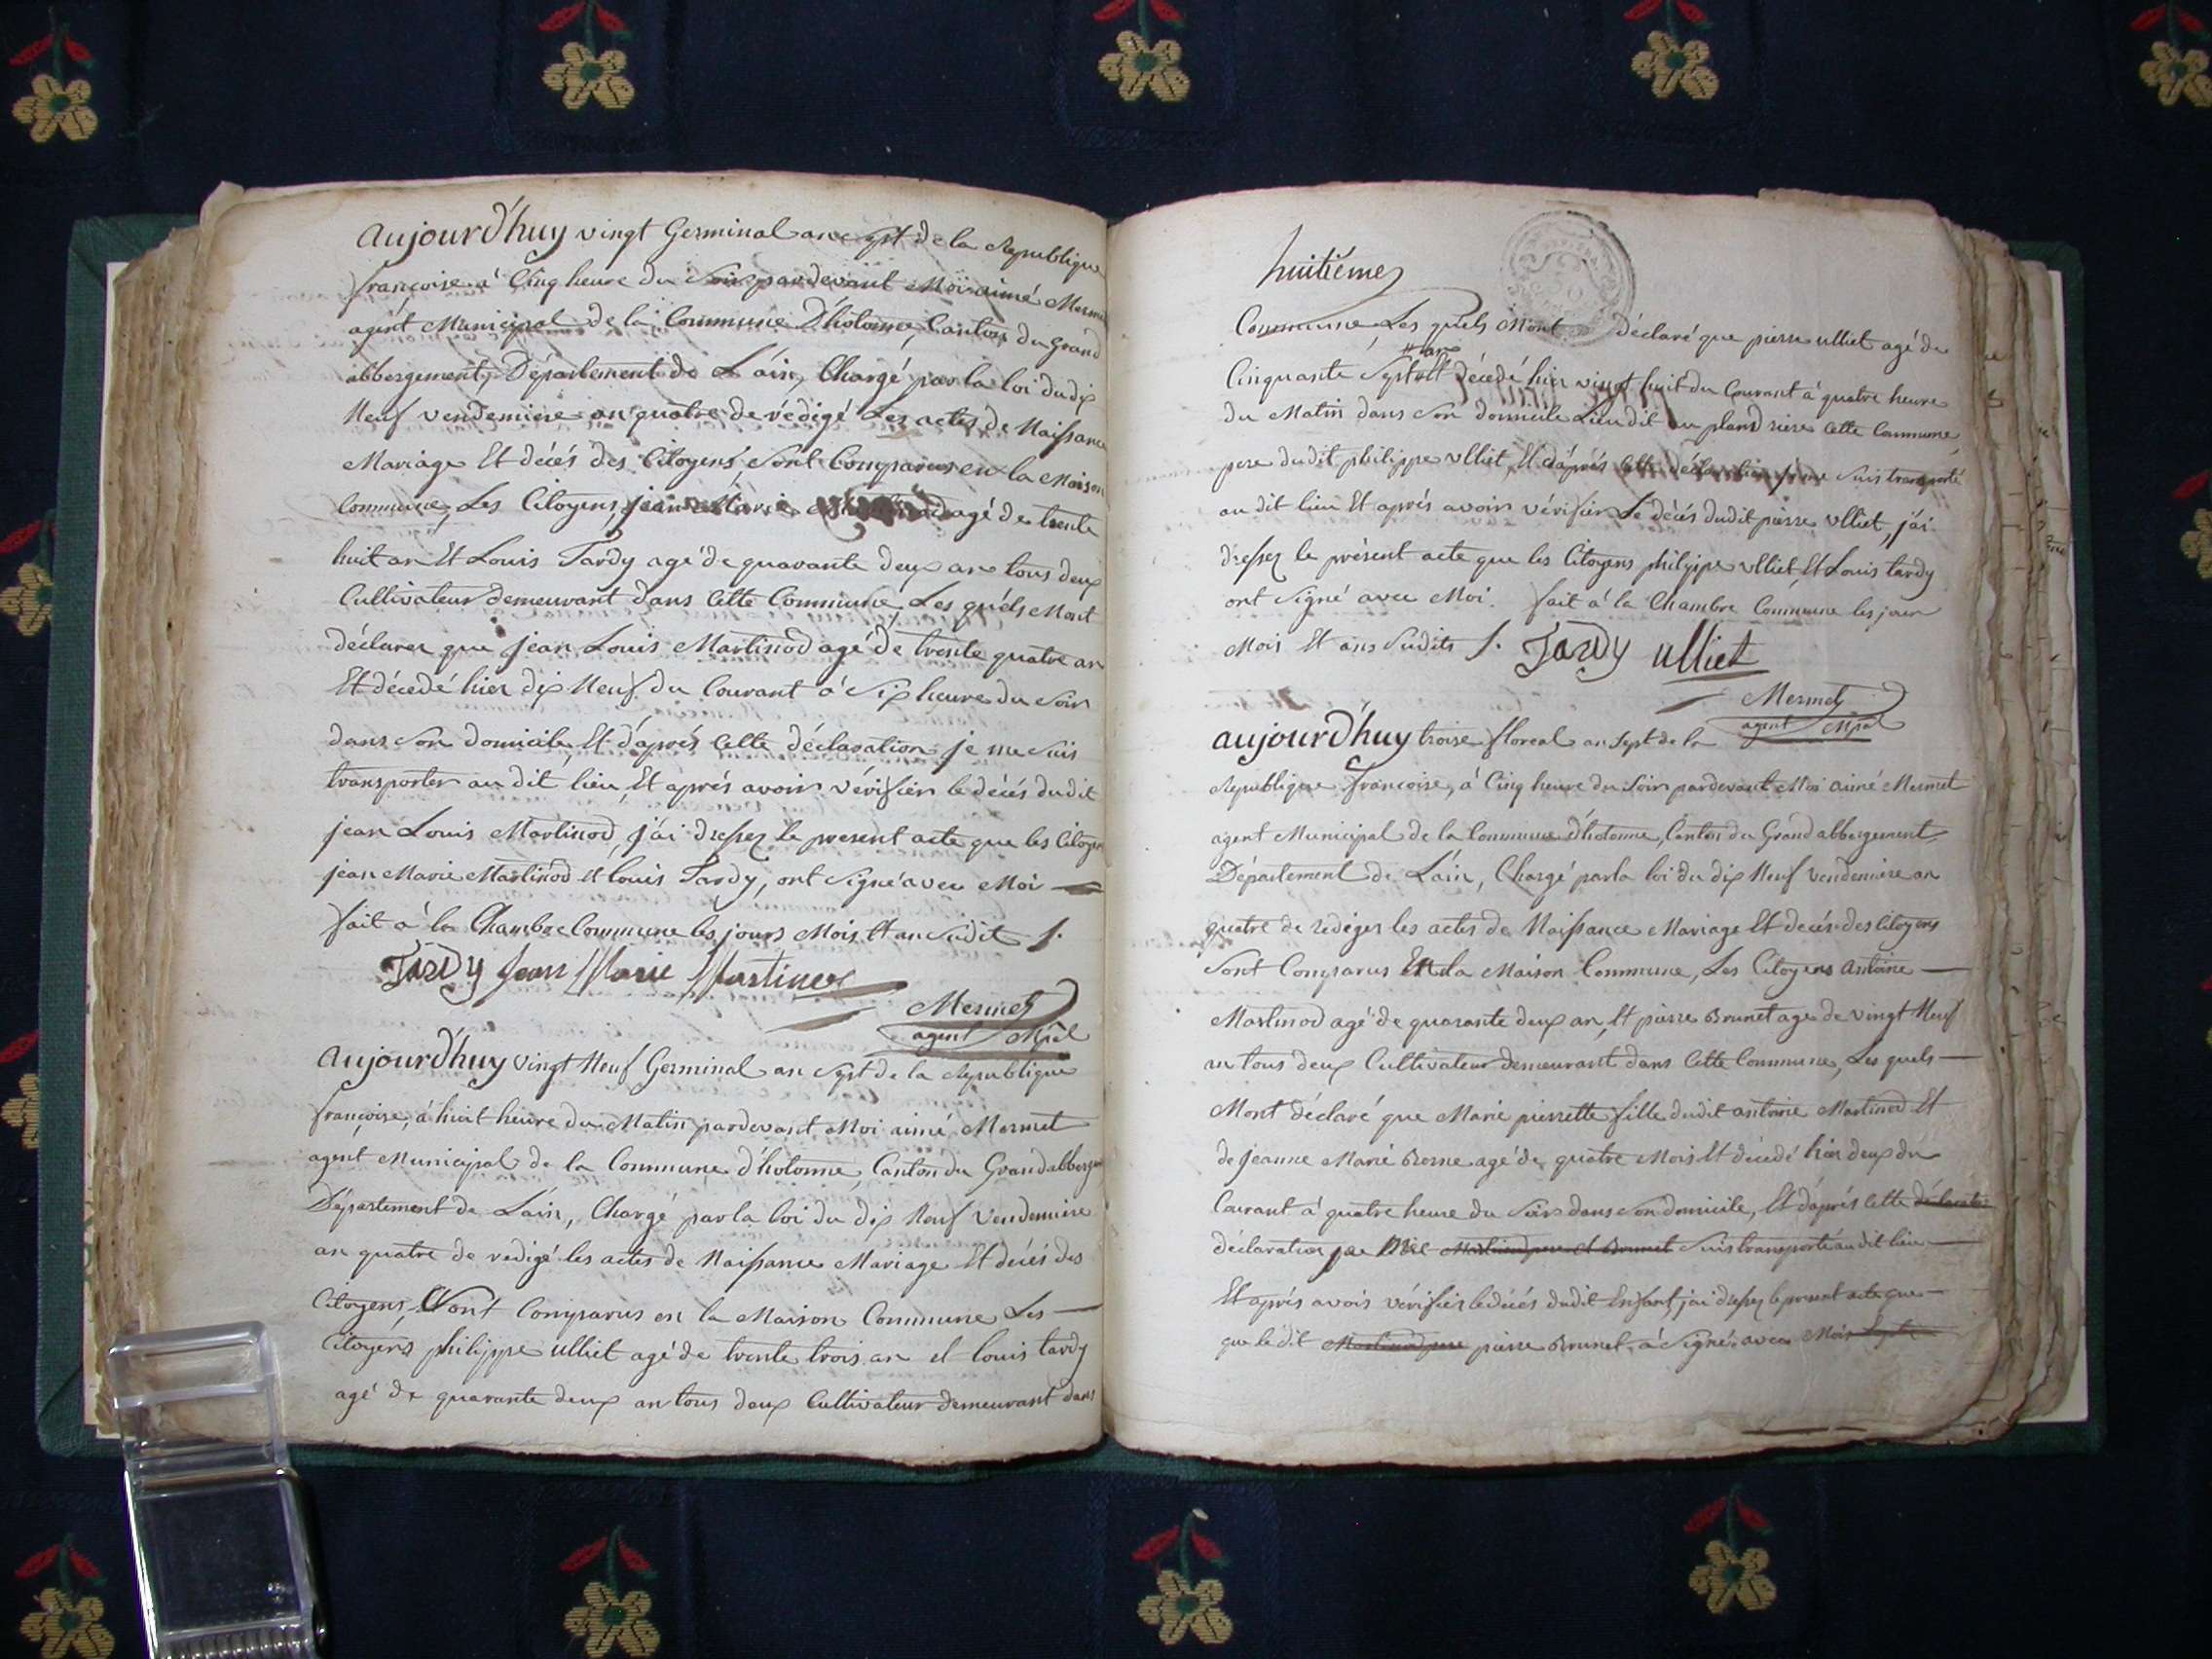 aujourd'huy vingt Germinal an sept de la Republique
françoise à Cinq heure du Soir pardevant Moi aimé Mermet
agent Municipal de la Commune D'hotonne, Canton du grand
abbergement, Département de L'ain, Chargé par la loi du dix
Neuf vendemiere an quatre de rédigé Les actes de Naissance
Mariage Et décés des Citoyens, Sont Comparus en la Maison
Commune, Les Citoyens, jean Marie agé de trente
huit an Et Louis Tardy agé de quarante deux an tous deux
Cultivateur demeurant dans Cette Commune, Les quels Mont
déclarer que jean Louis Martinod agé de trente quatre an
Et décedé hier dix Neuf du Courant à Six heure du Soir
dans Son domicile, Et d'aprés Cette déclaration je me Suis
transporter au dit lieu, Et aprés avoir vérifier le décés dudit
jean Louis Martinod, j'ai dressez le present acte que les Citoyen
jean Marie Martinod et louis Tardy, ont Signé avec Moi
fait à la Chambre Commune les jours Mois Et an Sudit /.
Tardy jean Marie Martinod
Mermet
agent Mpal
aujourd'huy vingt Neuf Germinal an Sept de la Republique
françoise, à huit heure du Matin pardevant Moi aimé Mermet
agent Municipal de la Commune d'hotonne, Canton du Grand abbergement
Département de L'ain, Chargé par la loi du dix Neuf vendemiere
an quatre de redigé les actes de Naissance Mariage Et décés des
Citoyens, Sont Comparus en la Maison Commune Les
Citoyens philippe ulliet agé de trente trois an et louis tardy
agé de quarante deux an tous deux Cultivateur demeurant dans
huitième
Commune, Les quels Mont déclaré que pierre ulliet agé de
Cinquante Sept an Et décédé hier vingt huit du Courant à quatre heure
du Matin dans Son domicile Lieu dit au pland riere Cette Commune
pere dudit philippe ulliet, Et d'aprés Cette déclaration je me Suis transporté
au dit lieu Et aprés avoir vérifier Le décés dudit pierre ulliet, j'ai
dressez le présent acte que les Citoyens philippe ulliet, Et Louis tardy
ont Signé avec Moi. fait à la Chambre Commune les jour
Mois Et ans Sudits /. Tardy ulliet
Mermet
agent Mpal
aujourd'huy troise floreal an Sept de la
Republique françoise, à Cinq heure du Soir pardevant Moi aimé Mermet
agent Municipal de la Commune d'hotonne, Canton du Grand abbergement
Département de L'ain, Chargé par la loi du dix Neuf vendemiere an
quatre de rediger les actes de Naissance Mariage Et decés des Citoyens
Sont Comparus En la Maison Commune, Les Citoyens antoine
Martinod agé de quarante deux an, Et pierre Brunet age de vingt Neuf
an tous deux Cultivateur demeurant dans Cette Commune, Les quels
Mont déclaré que Marie pierrette fille dudit antoine Martinod Et
de jeanne Marie Berne agé de quatre Mois Et décedé hier deux du
Courant à quatre heure du Soir dans Son domicile, Et d'aprés Cette déclaration
déclaration je Me Martinod pere et Brunet Suis transporté au dit lieu
Et aprés avoir vérifier le décés dudit Enfant, j'ai dressez le present acte que
que le dit Martinod pere pierre Brunet, à Signé avec Moi